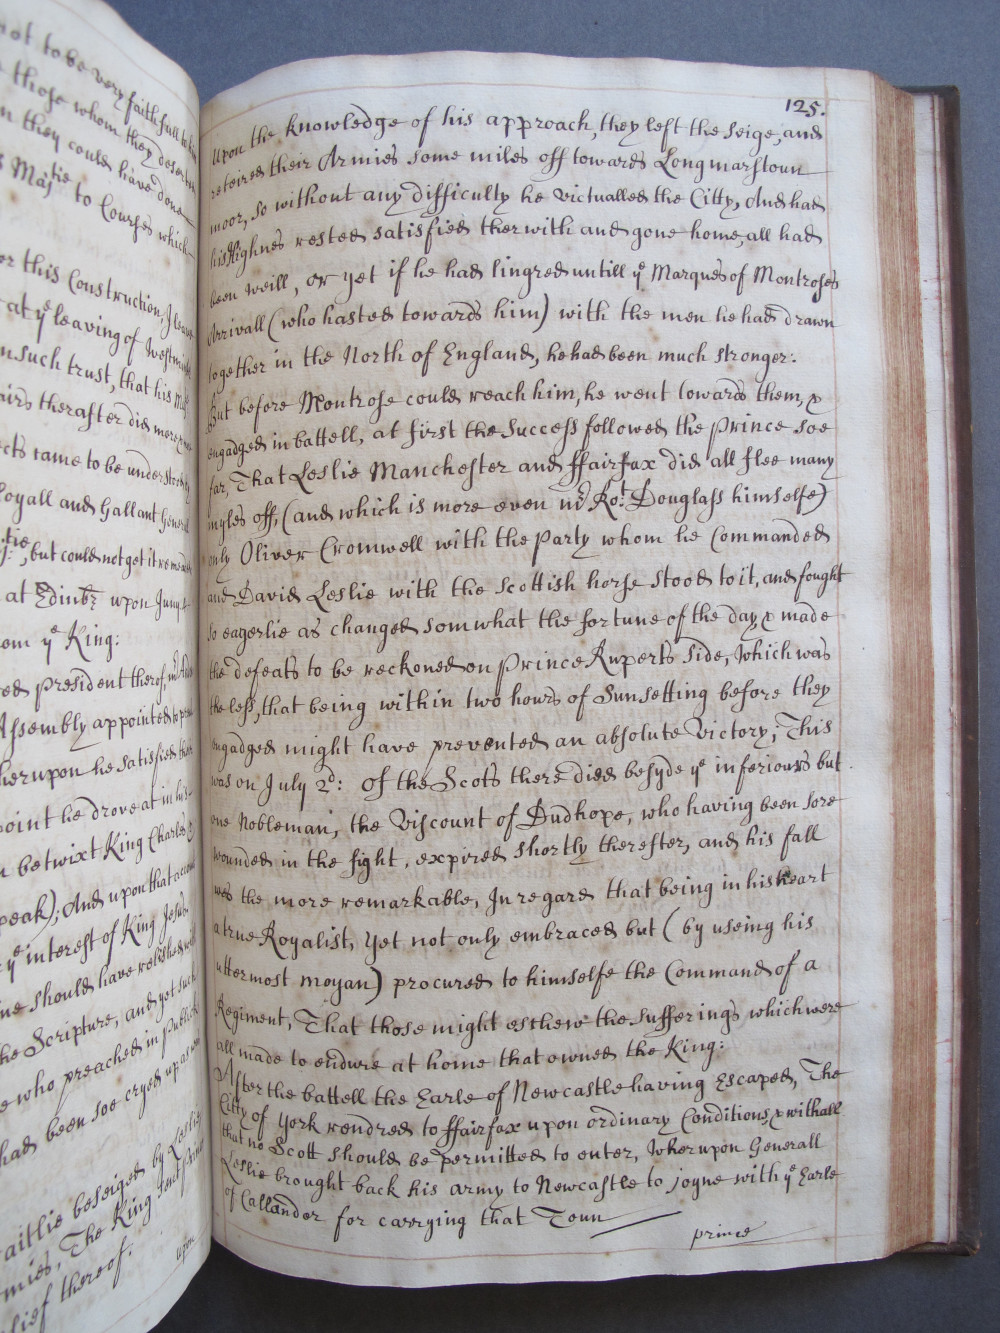 not to be very faithfull to him
those whom they deserted
they could have done
Matie to Courses which
for this Construction, I leave
at ye leaving of Westminster
such trust, that his
therafter did more &
came to be understood
Loyall and Gallant Generall
but could not get it
at Edinbr upon
ye King:
president therof,
Assembly appointed to
herupon he satisfied
point he drove at in his
betwixt King Charles &
speak); And upon that account
ye interest of King Jesus
should have relished
the Scripture, and yet such
who preached in publict
had been soe cryed up as
beseiged by Leslie
The King sent prince
thereof.
upon
125.
Upon the knowledge of his approach, they left the seige, and
reteired their Armies some miles off towards Longmarstoun
moor, so without any difficulty he victualled the Citty, And had
his Highnes rested satisfied therwith and gone home, all had
been weill, or yet if he had lingred untill ye Marques of Montroses
Arrivall (who hasted towards him) with the men he had drawn
together in the North of England, he had been much stronger:
But before Montrose could reach him, he went towards them, &
engadged in battell, at first the success followed the prince soe
far, That Leslie Manchester and ffairfax did all flee many
myles off, (and which is more even Mr Rot: Douglass himselfe)
only Oliver Cromwell with the Party whom he Commanded
and David Leslie with the Scottish horse stood to it, and fought
so eagerlie as changed somwhat the fortune of the day, & made
the defeats to be reckoned on Prince Ruperts side, Which was
the less, that being within two hours of Sunsetting before they
engadged might have prevented an absolute Victory, This
was on July 2d: Of the Scots there died besyde ye inferiours but
one Nobleman, the Viscount of Dudhope, who having been sore
wounded in the fight, expired shortly therefter, and his fall
wes the more remarkable, In regard that being in his heart
a true Royalist, Yet not only embraced but (by useing his
uttermost moyan) procured to himselfe the Command of a
Regiment, That those might eschew the sufferings which were
all made to endure at home that owned the King:
After the battell the Earle of Newcastle having Escaped, The
Citty of York rendred to ffairfax upon ordinary Conditions, & withall
that no Scott should be permitted to enter, Wherupon Generall
Leslie brought back his army to Newcastle to joyne with ye Earle
of Callander for carrying that Toun
prince